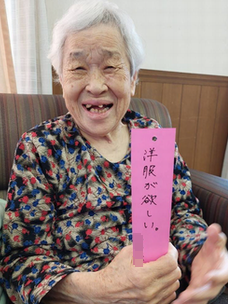 洋服が欲しい。